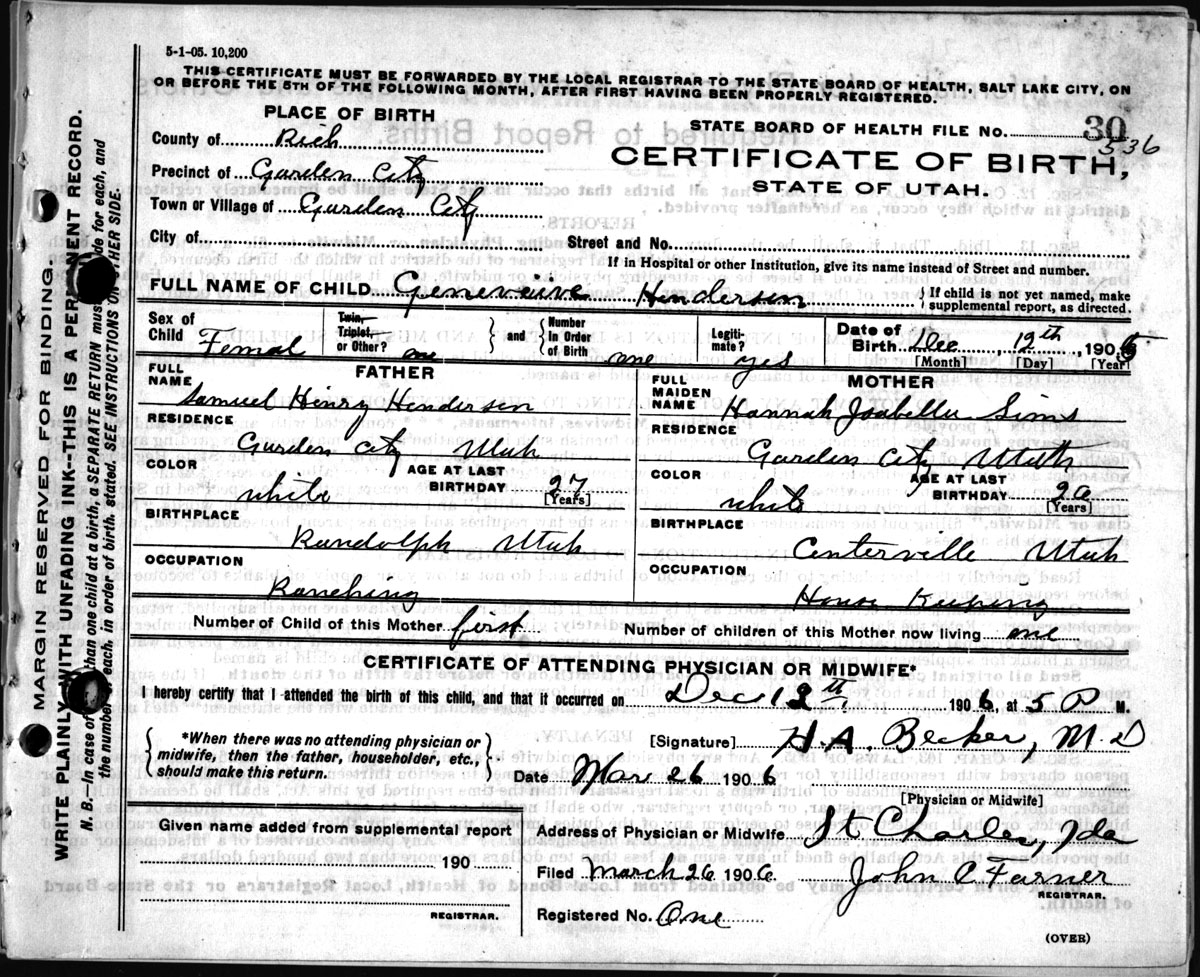 5-1-05. 10,200
THIS CERTIFICATE MUST BE FORWARDED BY THE LOCAL REGISTRAR TO THE STATE BOARD OF HEALTH, SALT LAKE CITY, ON
OR BEFORE THE 5TH OF THE FOLLOWING MONTH, AFTER FIRST HAVING BEEN PROPERLY REGISTERED.
PLACE OF BIRTH
County of Rich
Precinct of Garden City
Town or Village of Garden City
STATE BOARD OF HEALTH FILE No. 30
536
CERTIFICATE OF BIRTH,
STATE OF UTAH.
City of Street and No.
If in Hospital or other Institution, give its name instead of Street and number.
FULL NAME OF CHILD Geneveive Henderson } If child is not yet named, make supplemental report, as directed.
Sex of Child Femal
Twin, Triplet, or Other? one } and { Number In Order of Birth one
Legitimate? yes
Date of Birth Dec 12th, 1905
[Month] [Day] [Year]
FATHER
FULL NAME Samuel Hinry Henderson
RESIDENCE
Garden City Utah
COLOR white AGE AT LAST BIRTHDAY 27 [Years]
BIRTHPLACE
Randolph Utah
OCCUPATION
Ranching
MOTHER
FULL MAIDEN NAME Hannah Isabella Sims
RESIDENCE
Garden City Utah
COLOR white AGE AT LAST BIRTHDAY [Years]
BIRTHPLACE
Centerville Utah
OCCUPATION
House Keeping
Number of Child of this Mother first Number of children of this Mother now living one
CERTIFICATE OF ATTENDING PHYSICIAN OR MIDWIFE*
I hereby certify that I attended the birth of this child, and that it occurred on Dec 12th, 1906, at 5 P M.
{ *When there was no attending physician or midwife, then the father, householder, etc., should make this return. }
[Signature] H. A. Becker, M D
Date Mar 26 1906
[Physician or Midwife]
Given name added from supplemental report
190
REGISTRAR.
Address of Physician or Midwife St. Charles, Ida
Filed March 26 1906 John C Farner
REGISTRAR.
Registered No. One
(OVER)
MARGIN RESERVED FOR BINDING.
WRITE PLAINLY WITH UNFADING INK--THIS IS A PERMANENT RECORD.
N. B.—In case of than one child at a birth, a SEPARATE RETURN must be made for each, and
the number of each, in order of birth, stated. SEE INSTRUCTIONS ON OTHER SIDE.